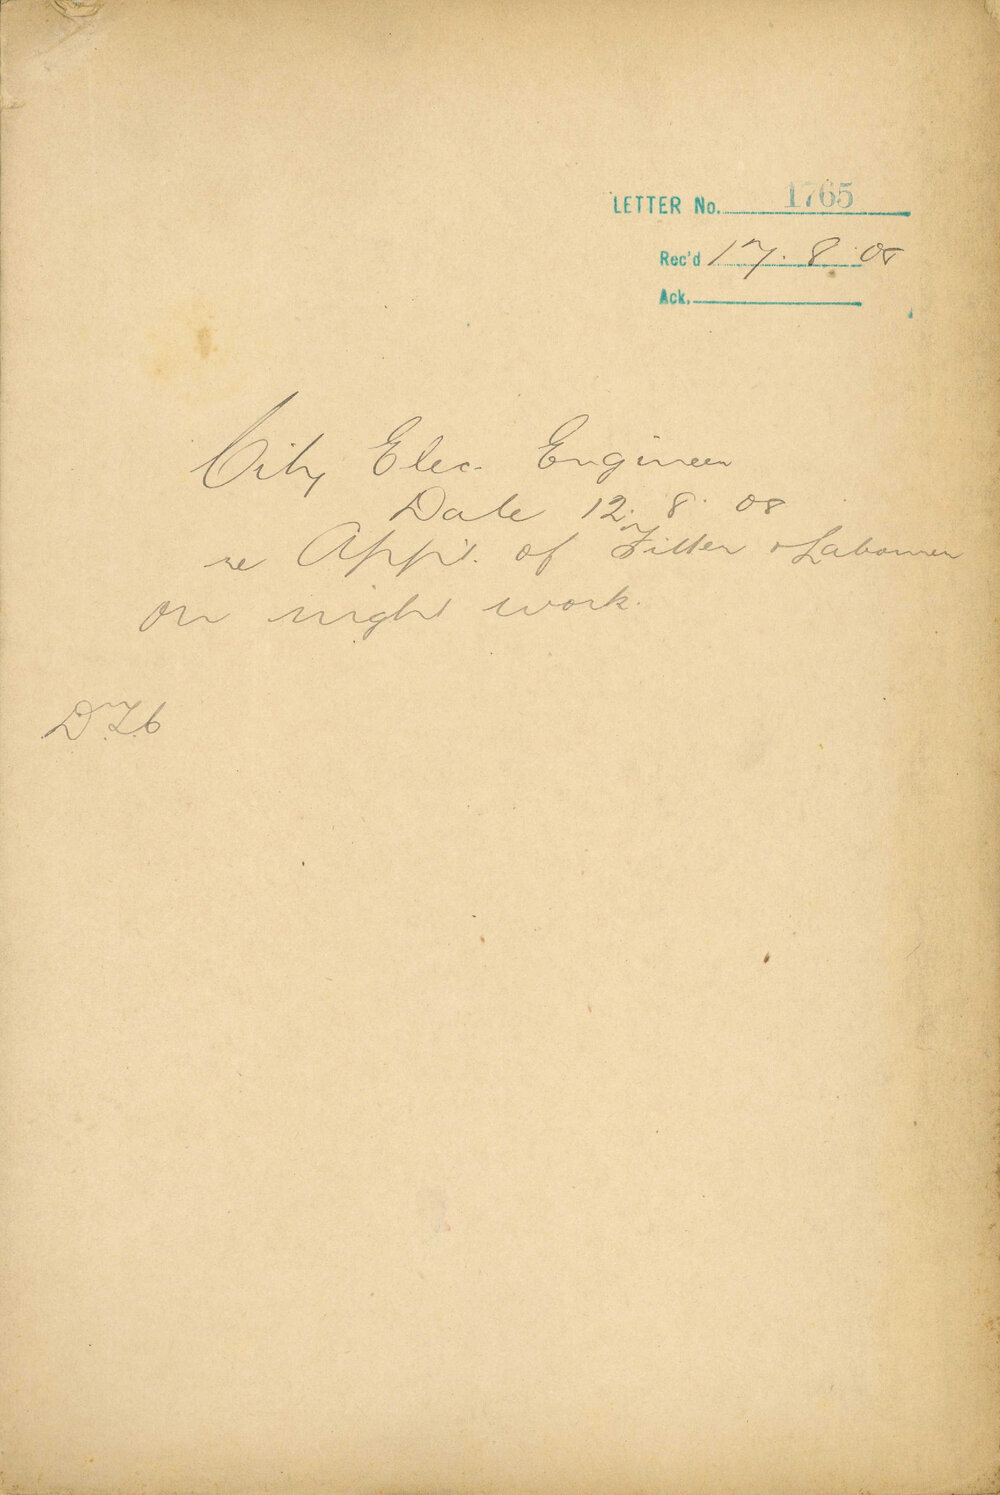 LETTER No. 1765
Rec'd 17. 8. 08
Ack.
City Elec. Engineer
Date 12. 8. 08
re App't. of Fitter & Labourer
on night work.